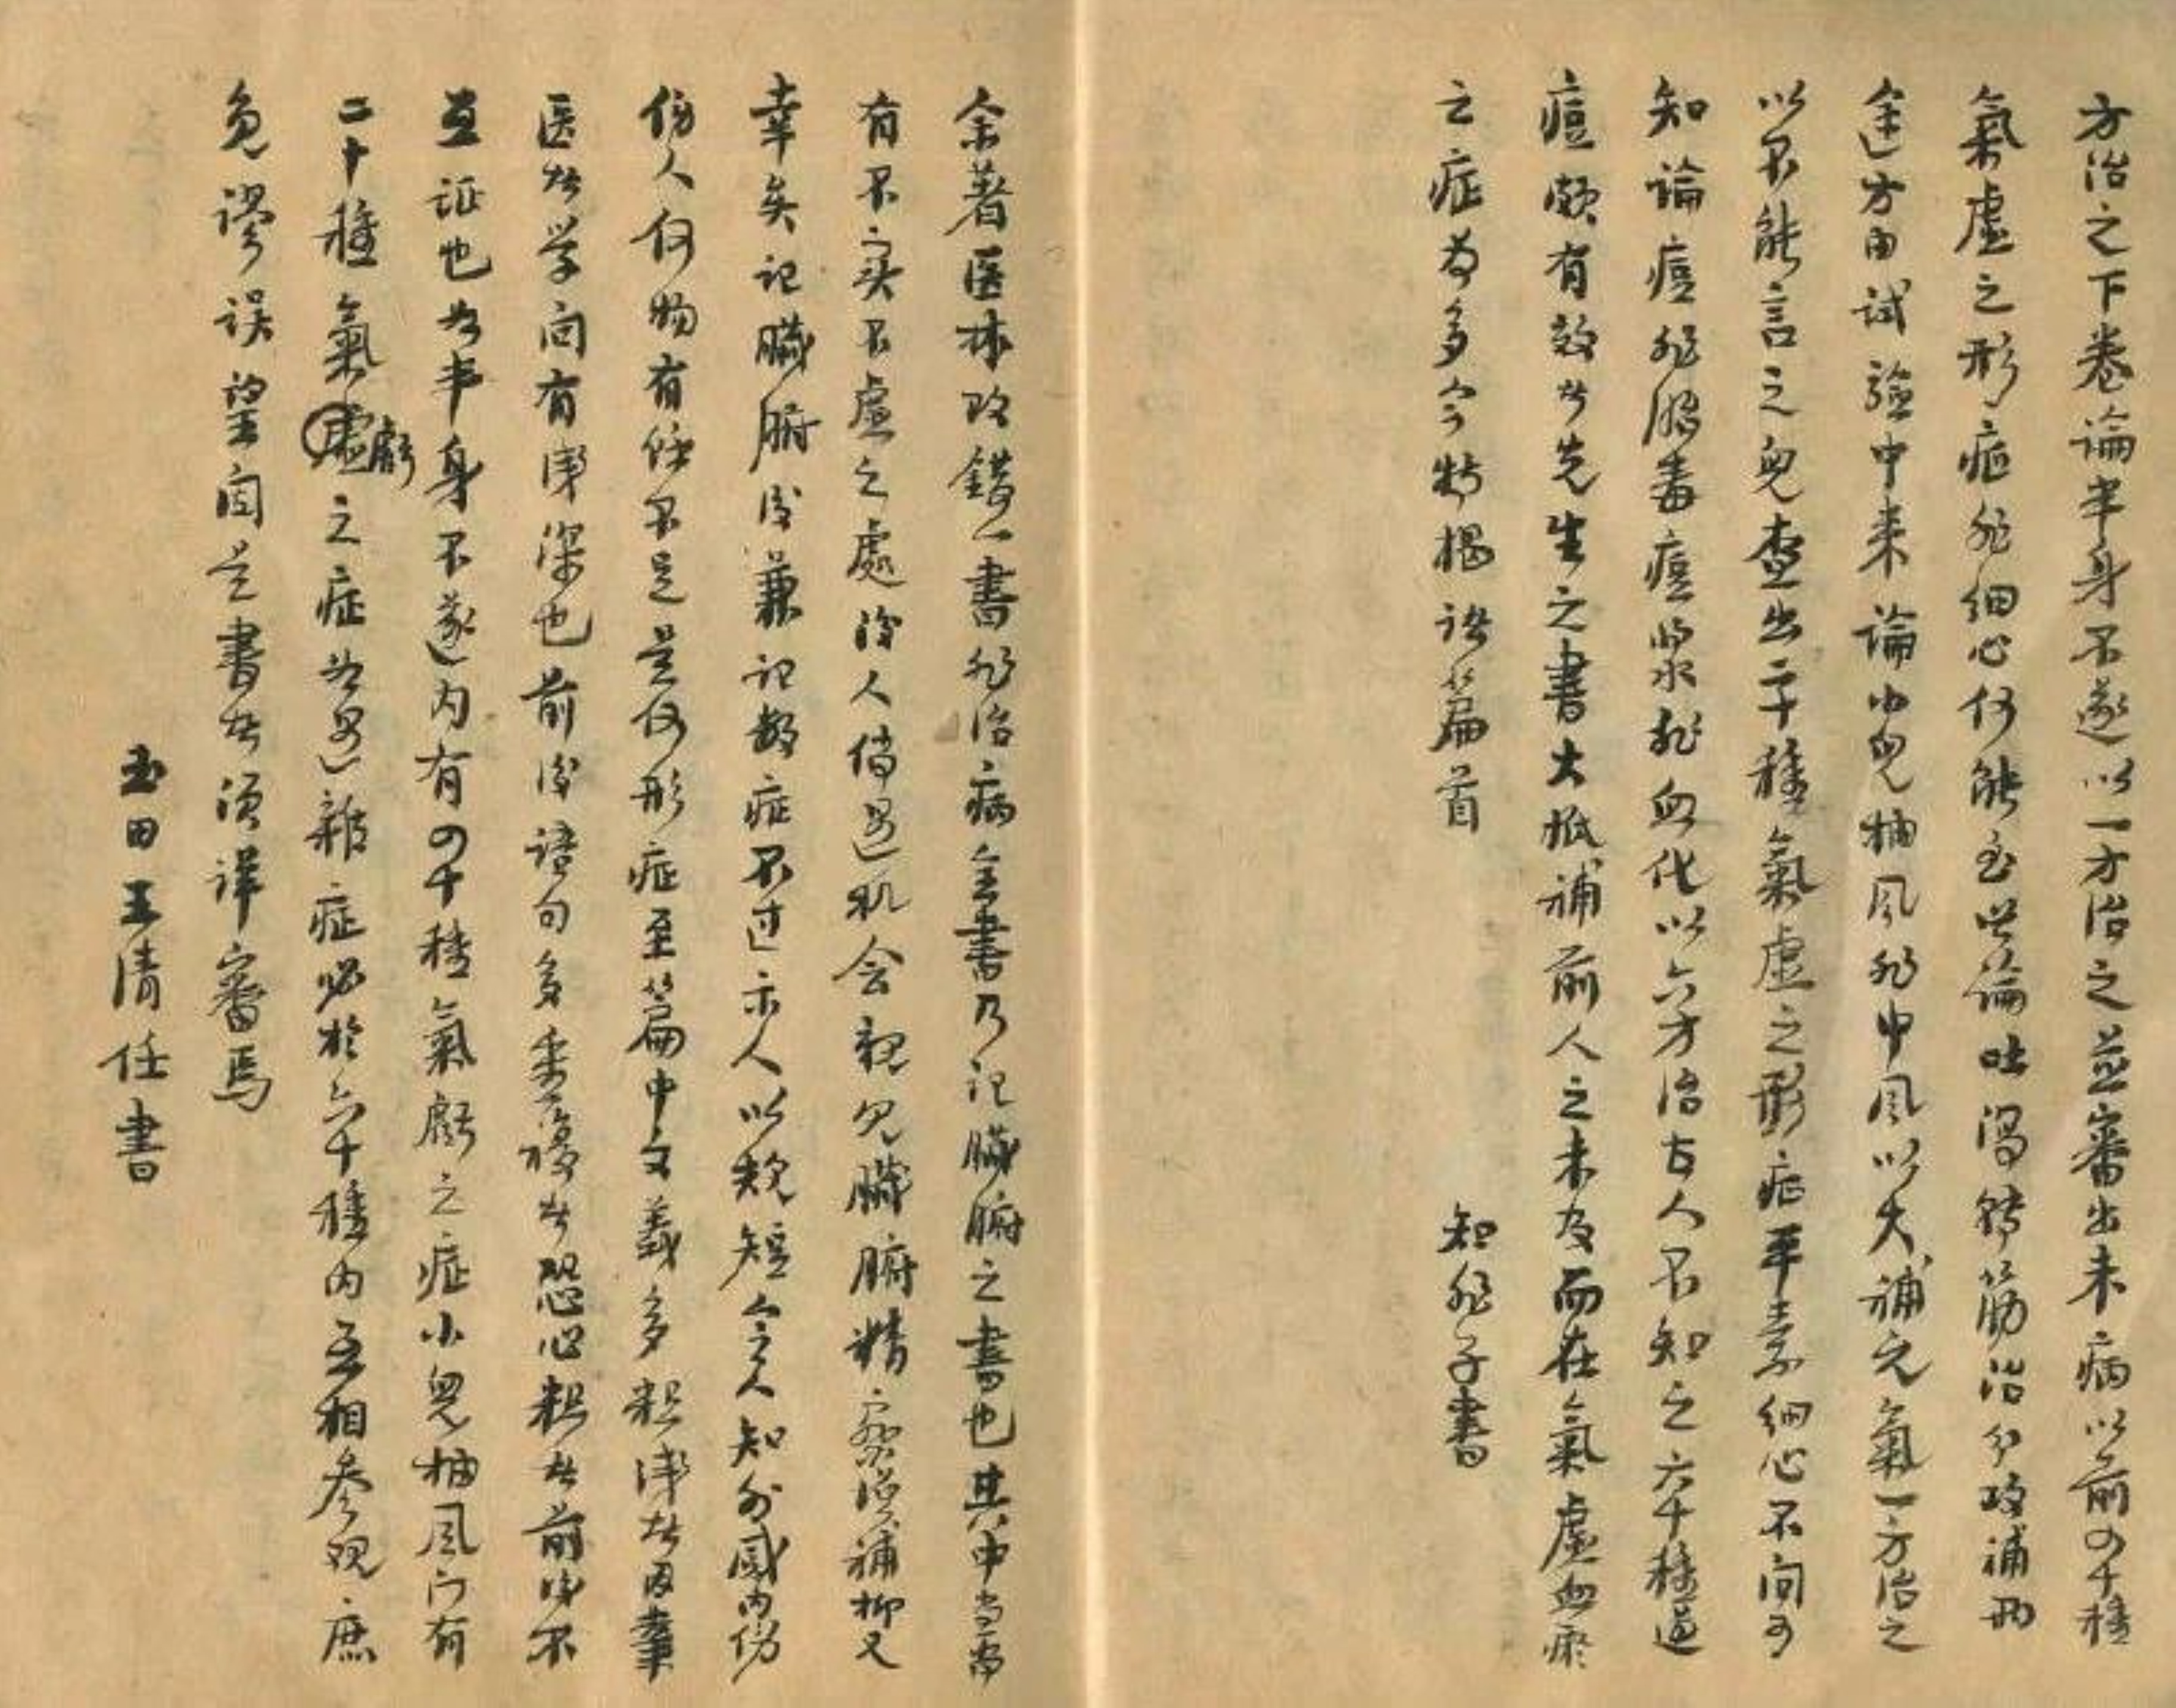 方治之下卷論半身不遂以一方治之並審出未病以前四十種
氣虛之形症非細心何能至此論吐瀉轉筋治分攻補兩
途方由試驗中来論小兒抽風非中風以大補元氣一方治之
以不能言之兒查出二十種氣虛之形症平素細心不問可
知論痘非胎毒痘漿非血化以六方治古人不知之六十種逆
痘頗有效者先生之書大抵補前人之未及而在氣虛血瘀
之症為多今特揭諸篇首
知非子書
余著医林攻錯一書非治病全書乃记臟腑之書也其中當尚
有不实不虛之處後人倘遇机会親見臟腑精察增補抑又
幸矣记臟腑後兼记数症不过示人以規矩令人知外感内伤
伤人何物有餘不足是何形症至篇中文義多粗浅者因業
医者学问有浅深也前後語句多重複者恐心粗者前後不
互证也如半身不遂内有四十種氣虧之症小兒抽風门有
二十種氣虛虧之症如遇雜症必於六十種内互相参观庶
免谬误望阅是書者须详審焉
玉田王清任書